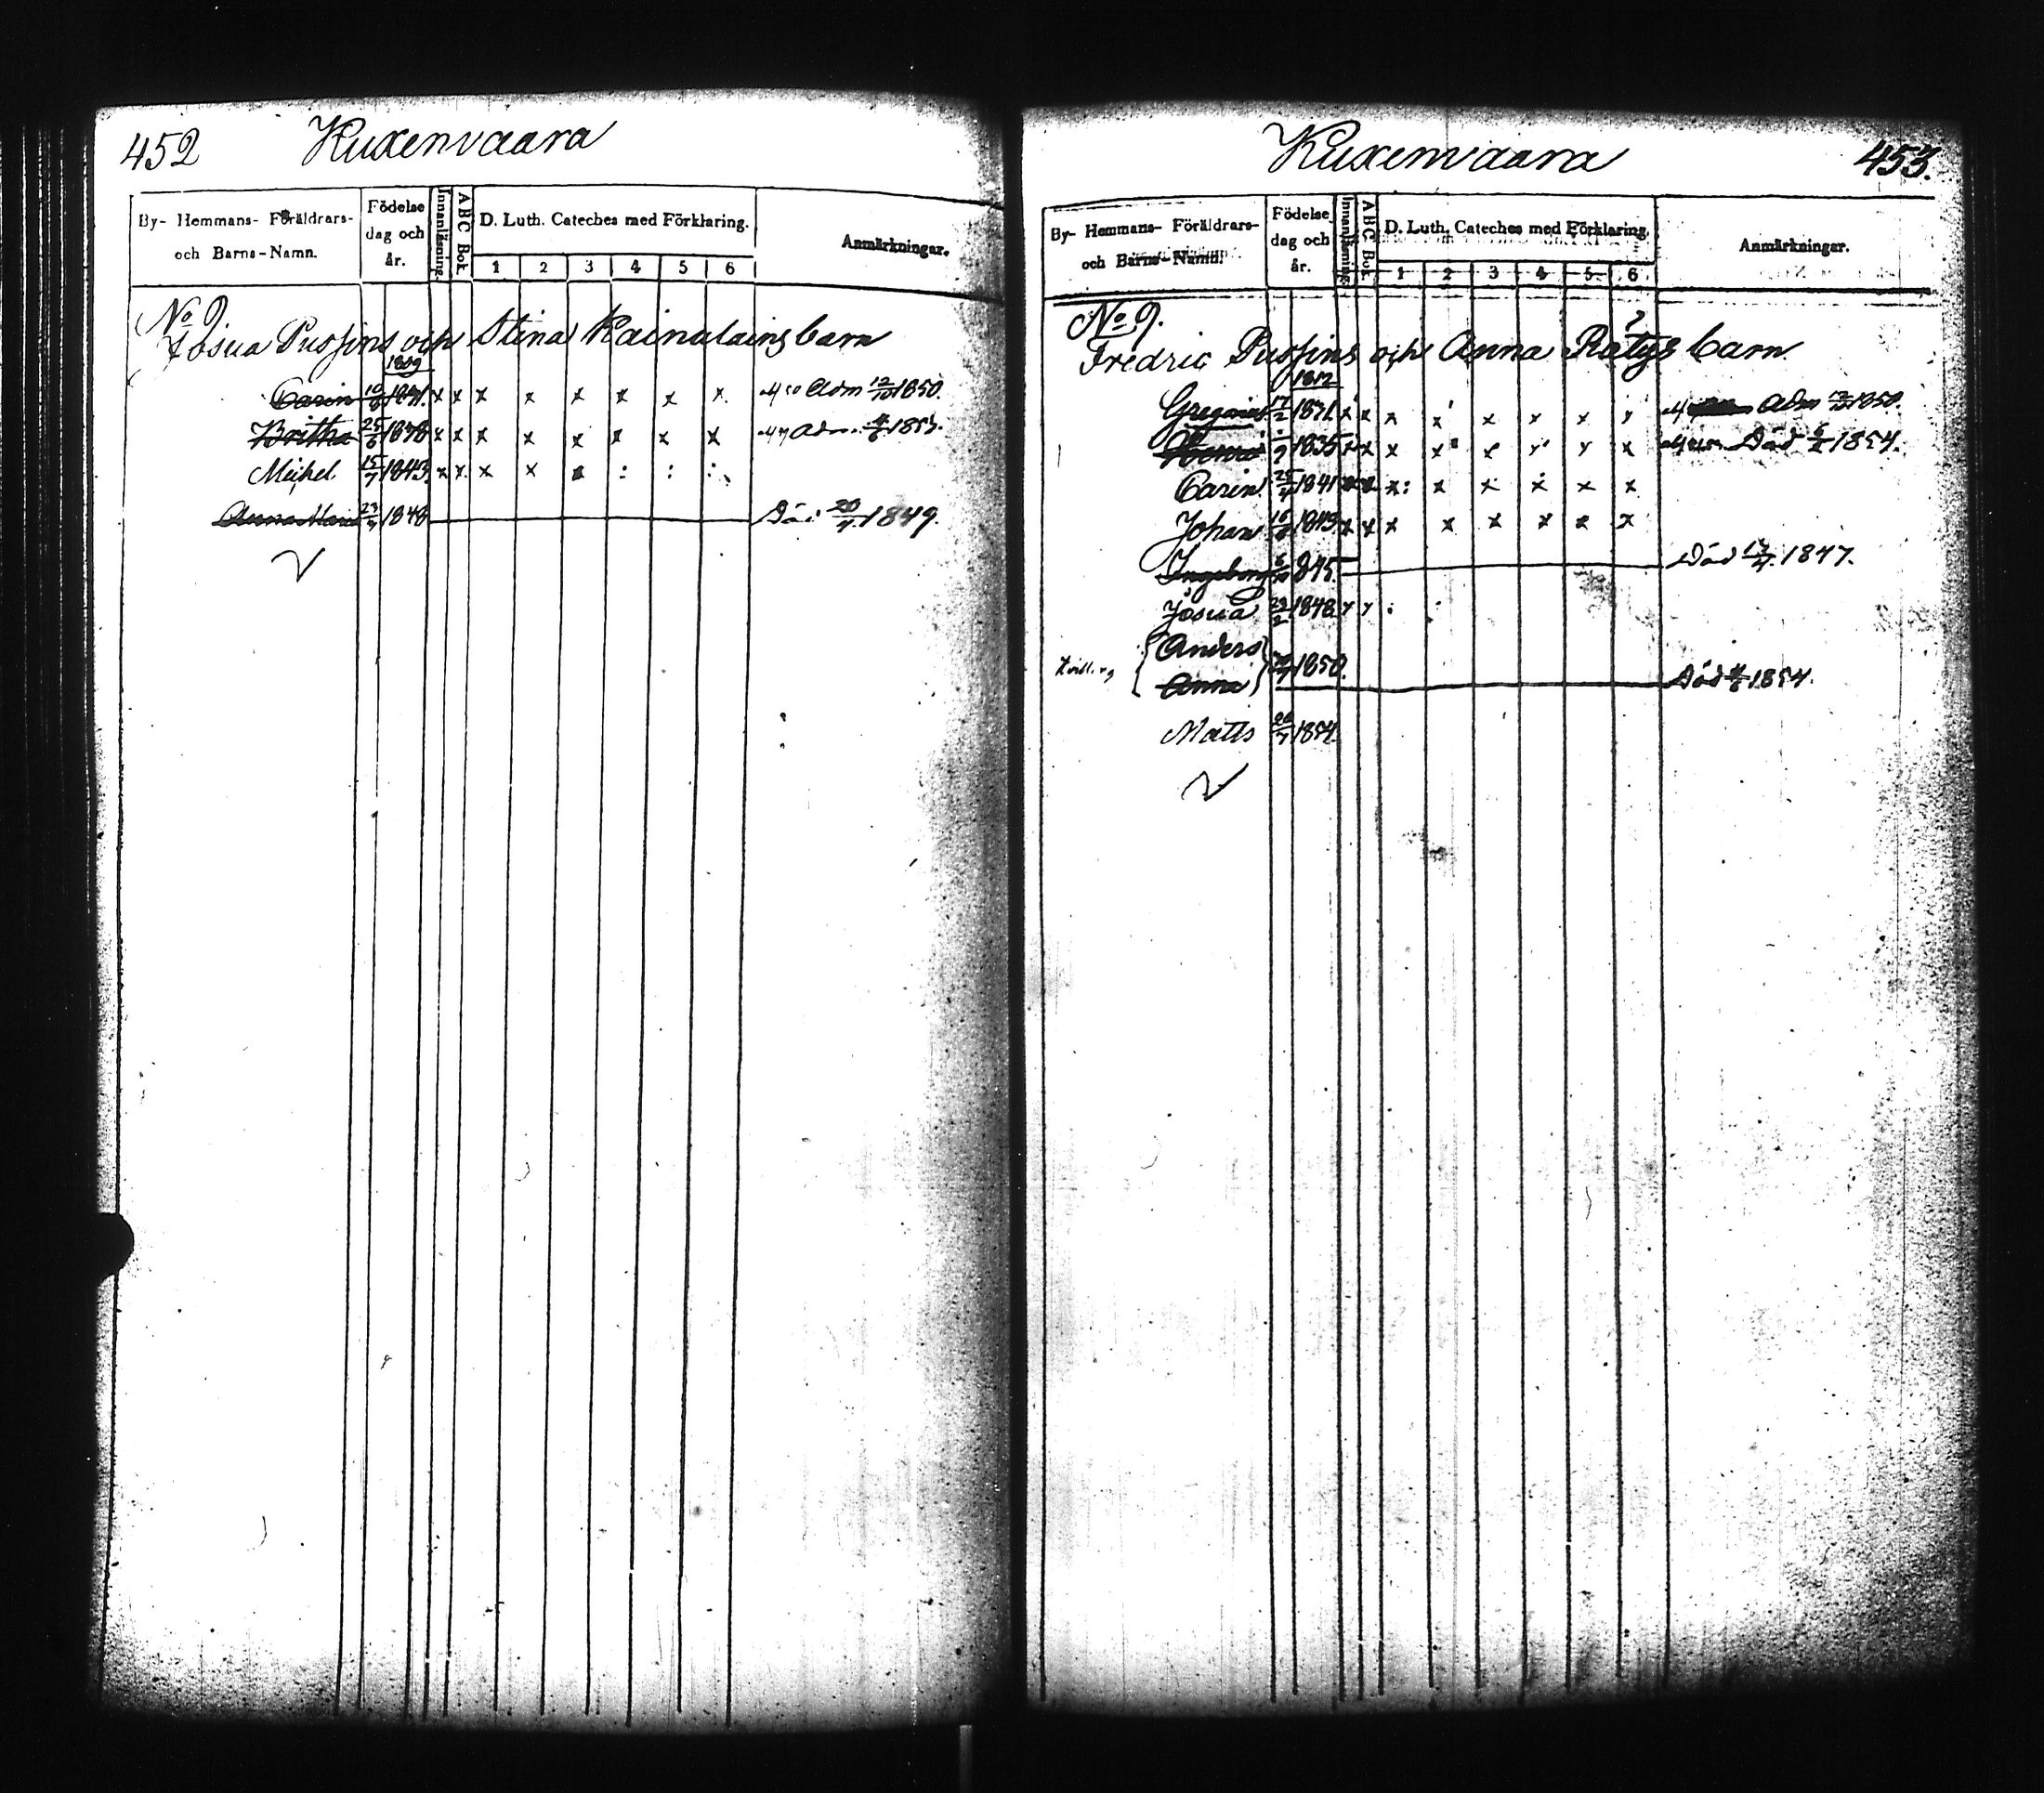 452 Kuxenvaara
By- Hemmans- Föräldrars- och Barns-Namn. Födelse dag och år. Innanläsning. ABC Bok. D. Luth. Cateches med Förklaring. Anmärkningar.
1 2 3 4 5 6
No 9.
Josua Pussins och Stina Rainalains barn
1809
Carin 10/8 1831. x x x x x x x x Adm 12/10 1850.
Britha 25/6 1838 x x x x x x x x 1853.
Michel 15/7 1843. x x x x
Anna Maria 23/4 1848 Död 20/7 1849.
Kuxenvaara 453.
By- Hemmans- Föräldrars- och Barns-Namn. Födelse dag och år. Innanläsning. ABC Bok. D. Luth. Cateches med Förklaring. Anmärkningar.
1 2 3 4 5 6
No 9.
Fredric Pussins och Anna Rätys barn
1812
Gregorius 17/2 1831. x x x x x x x x Adm 1850.
1835 x x x x x x x x Död 1854.
Carin 25/4 1841 x x x x x x x x
Johan 16/6 1843. x x x x x x x x
Ingeborg 1845. Död 1847.
Josua 29/2 1848 x x
Anders
Anna 1850. Död 1854.
Matts 26/7 1854.